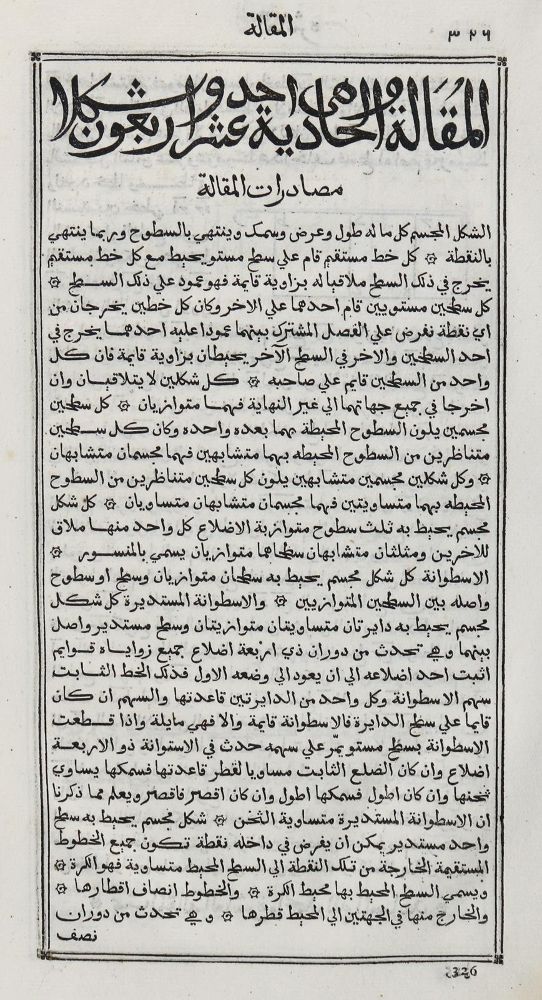 المقالة
٣٢٦
المقالة الحادية عشر احد واربعون شكلا
مصادرات المقالة
الشكل المجسم كل ما له طول وعرض وسمك وينتهي بالسطوح وربما ينتهي
بالنقطة ۞ كل خط مستقيم قام علي سطح مستو يحيط مع كل خط مستقيم
يخرج في ذلك السطح ملاقيا له بزاوية قايمة فهو عمود علي ذلك السطح ۞
كل سطحين مستويين قام احدهما علي الاخر وكان كل خطين يخرجان من
اي نقطة نفرض علي الفصل المشترك بينهما عمودا عليه احدهما يخرج في
احد السطحين والاخر في السطح الآخر يحيطان بزاوية قايمة فان كل
واحد من السطحين قايم علي صاحبه ۞ كل شكلين لا يتلاقيان وان
اخرجا في جميع جهاتهما الي غير النهاية فهما متوازيان ۞ كل سطحين
مجسمين يلون السطوح المحيطة بهما بعده واحده وكان كل سطحين
متناظرين من السطوح المحيطه بهما متشابهين فهما مجسمان متشابهان
۞ وكل شكلين مجسمين متشابهين يلون كل سطحين متناظرين من السطوح
المحيطه بهما متساويتين فهما مجسمان متشابهان متساويان ۞ كل شكل
مجسم يحيط به ثلث سطوح متوازية الاضلاع كل واحد منها ملاق
للاخرين ومثلثان متشابهان سطحاهما متوازيان يسمي بالمنسور ۞
الاسطوانة كل شكل مجسم يحيط به سطحان متوازيان وسطح او سطوح
واصله بين السطحين المتوازيين ۞ والاسطوانة المستديرة كل شكل
مجسم يحيط به دايرتان متساويتان متوازيتان وسطح مستدير واصل
بينهما وهي تحدث من دوران ذي اربعة اضلاع جميع زواياه قوايم
اثبت احد اضلاعه الي ان يعود الي وضعه الاول فذلك الخط الثابت
سهم الاسطوانة وكل واحد من الدايرتين قاعدتها والسهم ان كان
قايما علي سطح الدايرة فالاسطوانة قايمة والا فهي مايلة واذا قطعت
الاسطوانة بسطح مستو يمر علي سهمه حدث في الاستوانة ذو الاربعة
اضلاع وان كان الضلع الثابت مساويا لقطر قاعدتها فسمكها يساوي
ثخنها وان كان اطول فسمكها اطول وان كان اقصر فاقصر ويعلم مما ذكرنا
ان الاسطوانة المستديرة متساوية الثخن ۞ شكل مجسم يحيط به سطح
واحد مستدير يمكن ان يفرض في داخله نقطة تكون جميع الخطوط
المستقيمة الخارجة من تلك النقطة الي السطح المحيط متساوية فهو الكرة ۞
ويسمي السطح المحيط بها محيط الكرة ۞ والخطوط انصاف اقطارها ۞
والخارج منها في الجهتين الي المحيط قطرها ۞ وهي تحدث من دوران
نصف
326